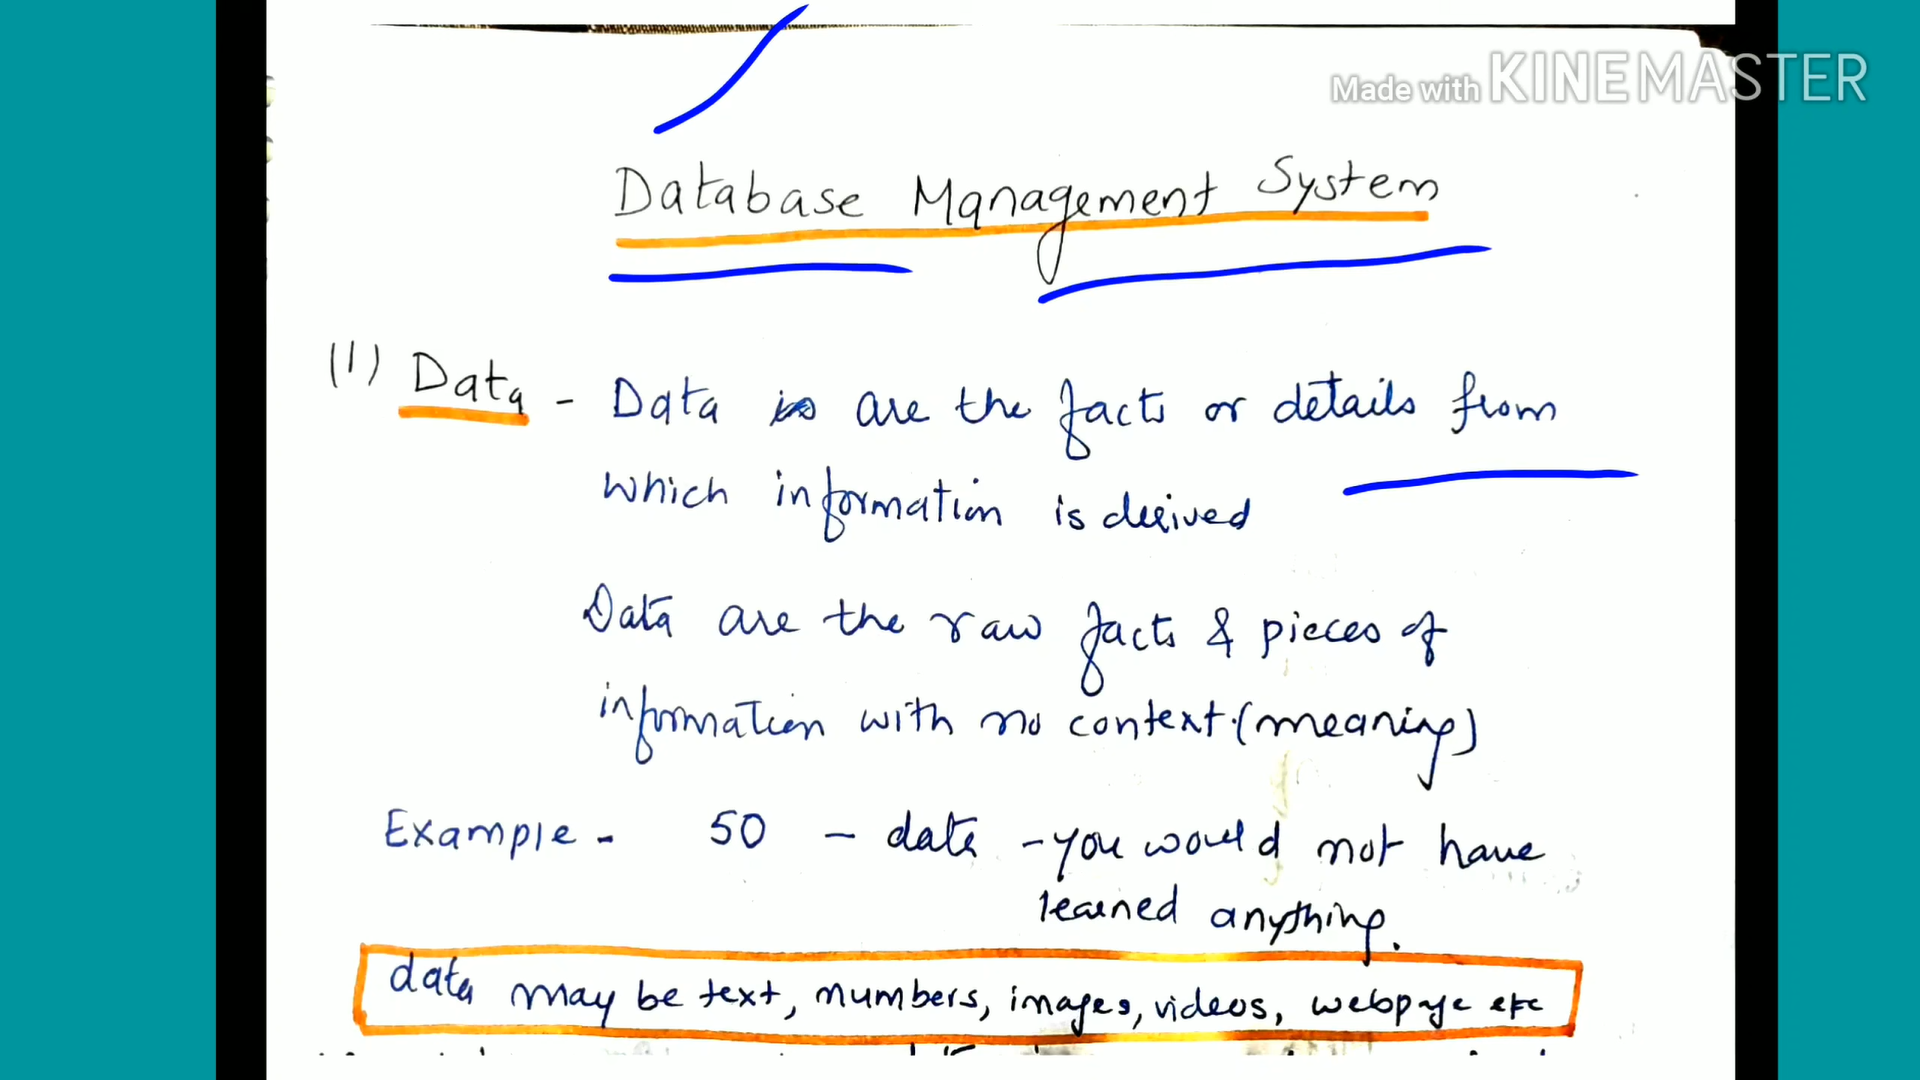 Made with KINEMASTER
Database Management System
(1) Data - Data are the facts or details from
which information is derived
Data are the raw facts & pieces of
information with no context. (meaning)
Example - 50 - data - you would not have
learned anything.
data may be text, numbers, images, videos, webpage etc